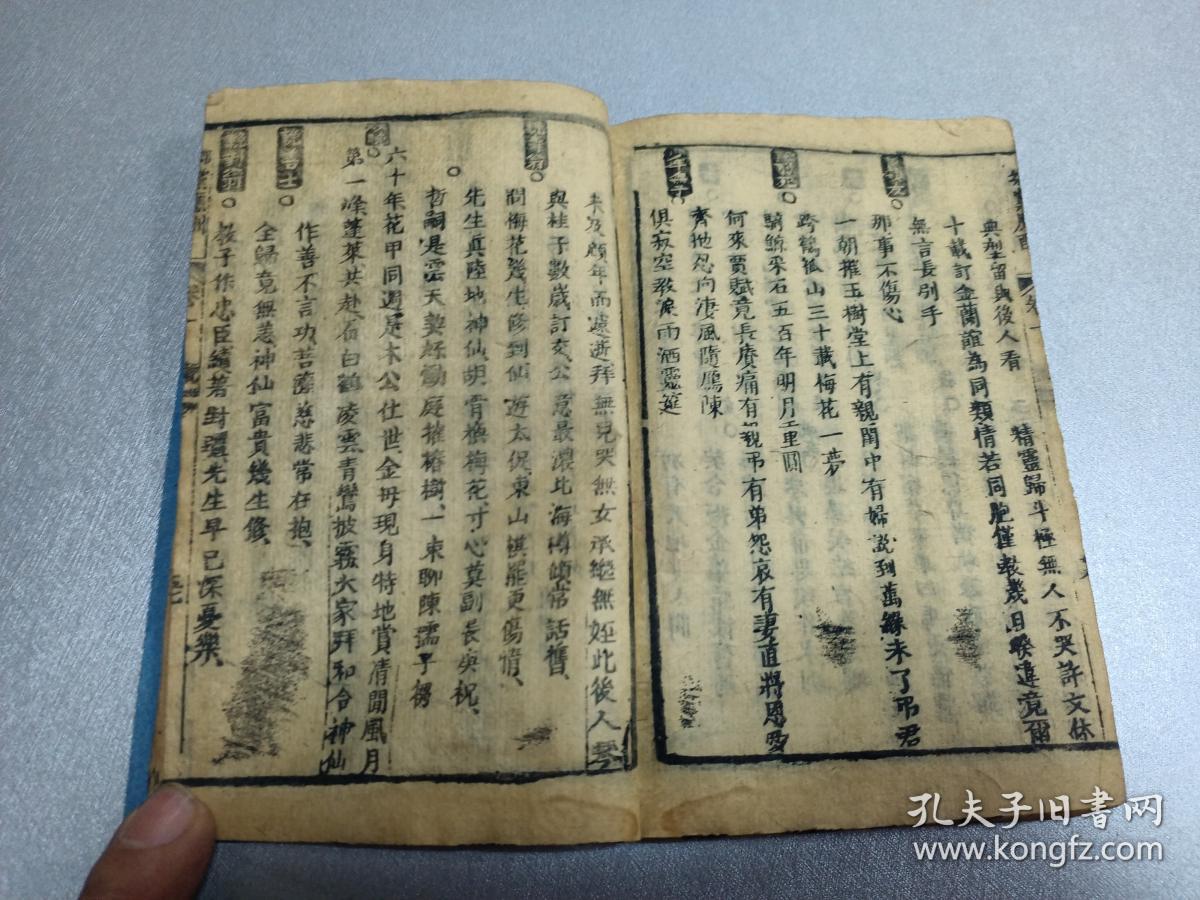 典型留與後人看　二精靈歸斗極無人不哭許文休
十載訂金蘭誼為同類情若同胞僅數幾日睽違竟爾
無言長別手
那事不傷心
一朝摧玉樹堂上有親閨中有婦說到萬緣未了弔君
跨鶴孤山三十載梅花一夢
騎鯨采石五百年明月重圓
何來賈賦竟長賡痛有親弔有弟怨哀有妻直將恩愛
齊拋忍向淒風隨鴈陳
俱寂空教淚雨洒靈筵
少年
卷一
未及頤年而遠逝拜無兒哭無女承繼無姪此後人琴
與桂子數歲訂交公意最濃北海罇頻常話舊
問梅花幾生修到仙遊太促東山棋罷更傷情
先生真陸地神仙胡肯換梅花寸心莫副長庚祝
哲嗣是雲天契好慟庭摧椿樹一束聊陳孺子芻
六十年花甲同週是木公仕世金母現身特地賞清閒風月
第一峰蓬萊共赴看白鶴凌雲青鸞披霧大家拜和合神仙
作善不言功菩薩慈悲常在抱
全歸竟無恙神仙富貴幾生修
教子作忠臣績著封疆先生早已深憂樂
孔夫子旧书网
www.kongfz.com